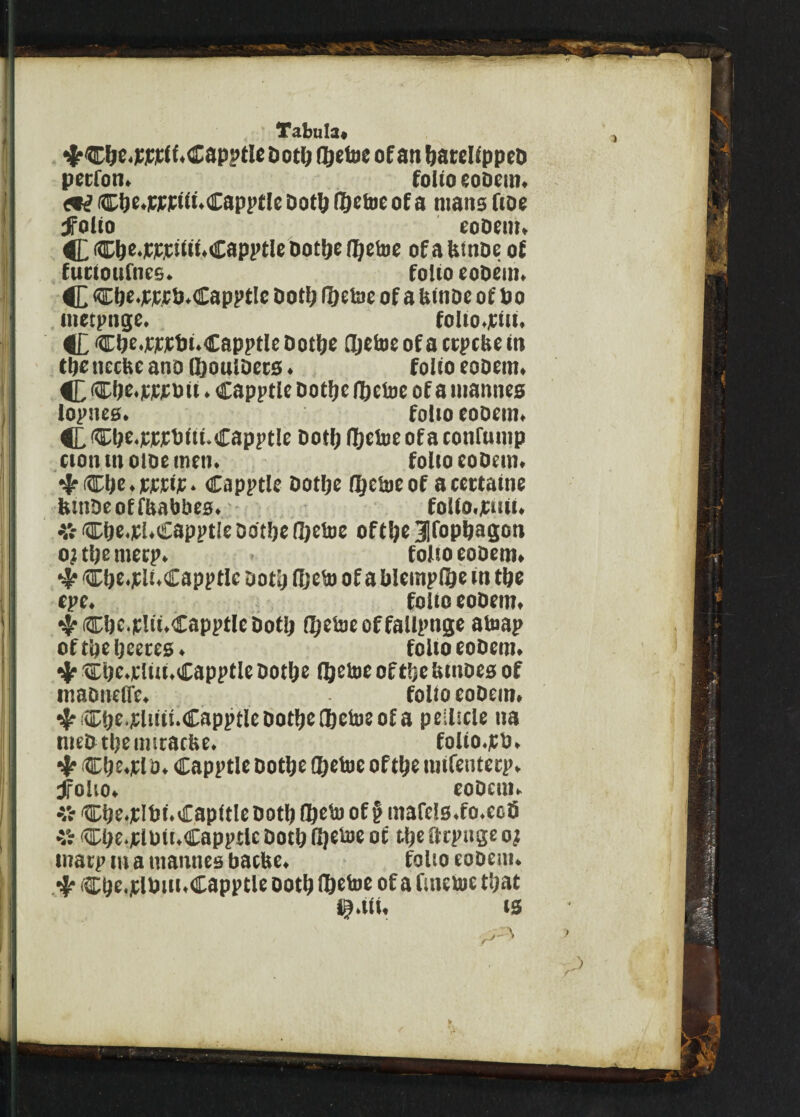 Tabula.
✤ The.xxxii.Capytle doth shewe of an harelipped
person. folio eodem.
☙ The.xxxiii.Capytle doth shewe of a mans side
Folio eodem.
❡ The.xxxiiii.Capytle dothe shewe of a kinde of
furioufnes. folio eodem.
❡ The.xxxv.Capytle doth shewe of a kinde of vo
metynge. folio.xiii.
❡ The.xxxvi.Capytle dothe shewe of a crycke in
the necke and shoulders. folio eodem.
❡ The.xxxvii. Capytle dothe shewe of a mannes
loynes. folio eodem.
❡ The.xxxviii.Capytle doth shewe of a consump
cion in olde men. folio eodem.
✤ The.xxxix. Capytle dothe shewe of a certaine
kinde of skabbes. folio.xiiii.
✤ The.xl.Capytle dothe shewe of the Isophagon
or the mery. folio eodem.
✤ The.xli.Capytle doth shew of a blemyshe in the
eye. folio eodem.
✤ The.xlii.Capytle doth shewe of fallynge away
of the heeres. folio eodem.
✤ The.xliii.Capytle dothe shewe of the kindes of
madnesse. folio eodem.
✤ The.xliiii.Capytle dothe shewe of a pellicle na
med the mirache. folio.xv.
✤ The.xlv. Capytle dothe shewe of the misentery.
Folio. eodem.
✤ The.xlvi.Capitle doth shew of þͤ masels.fo.eod̄
✤ The.xlvii.Capytle doth shewe of the strynge or
mary in a mannes backe. folio eodem.
✤ The.xlviii.Capytle doth shewe of a sinewe that
H.iii. is